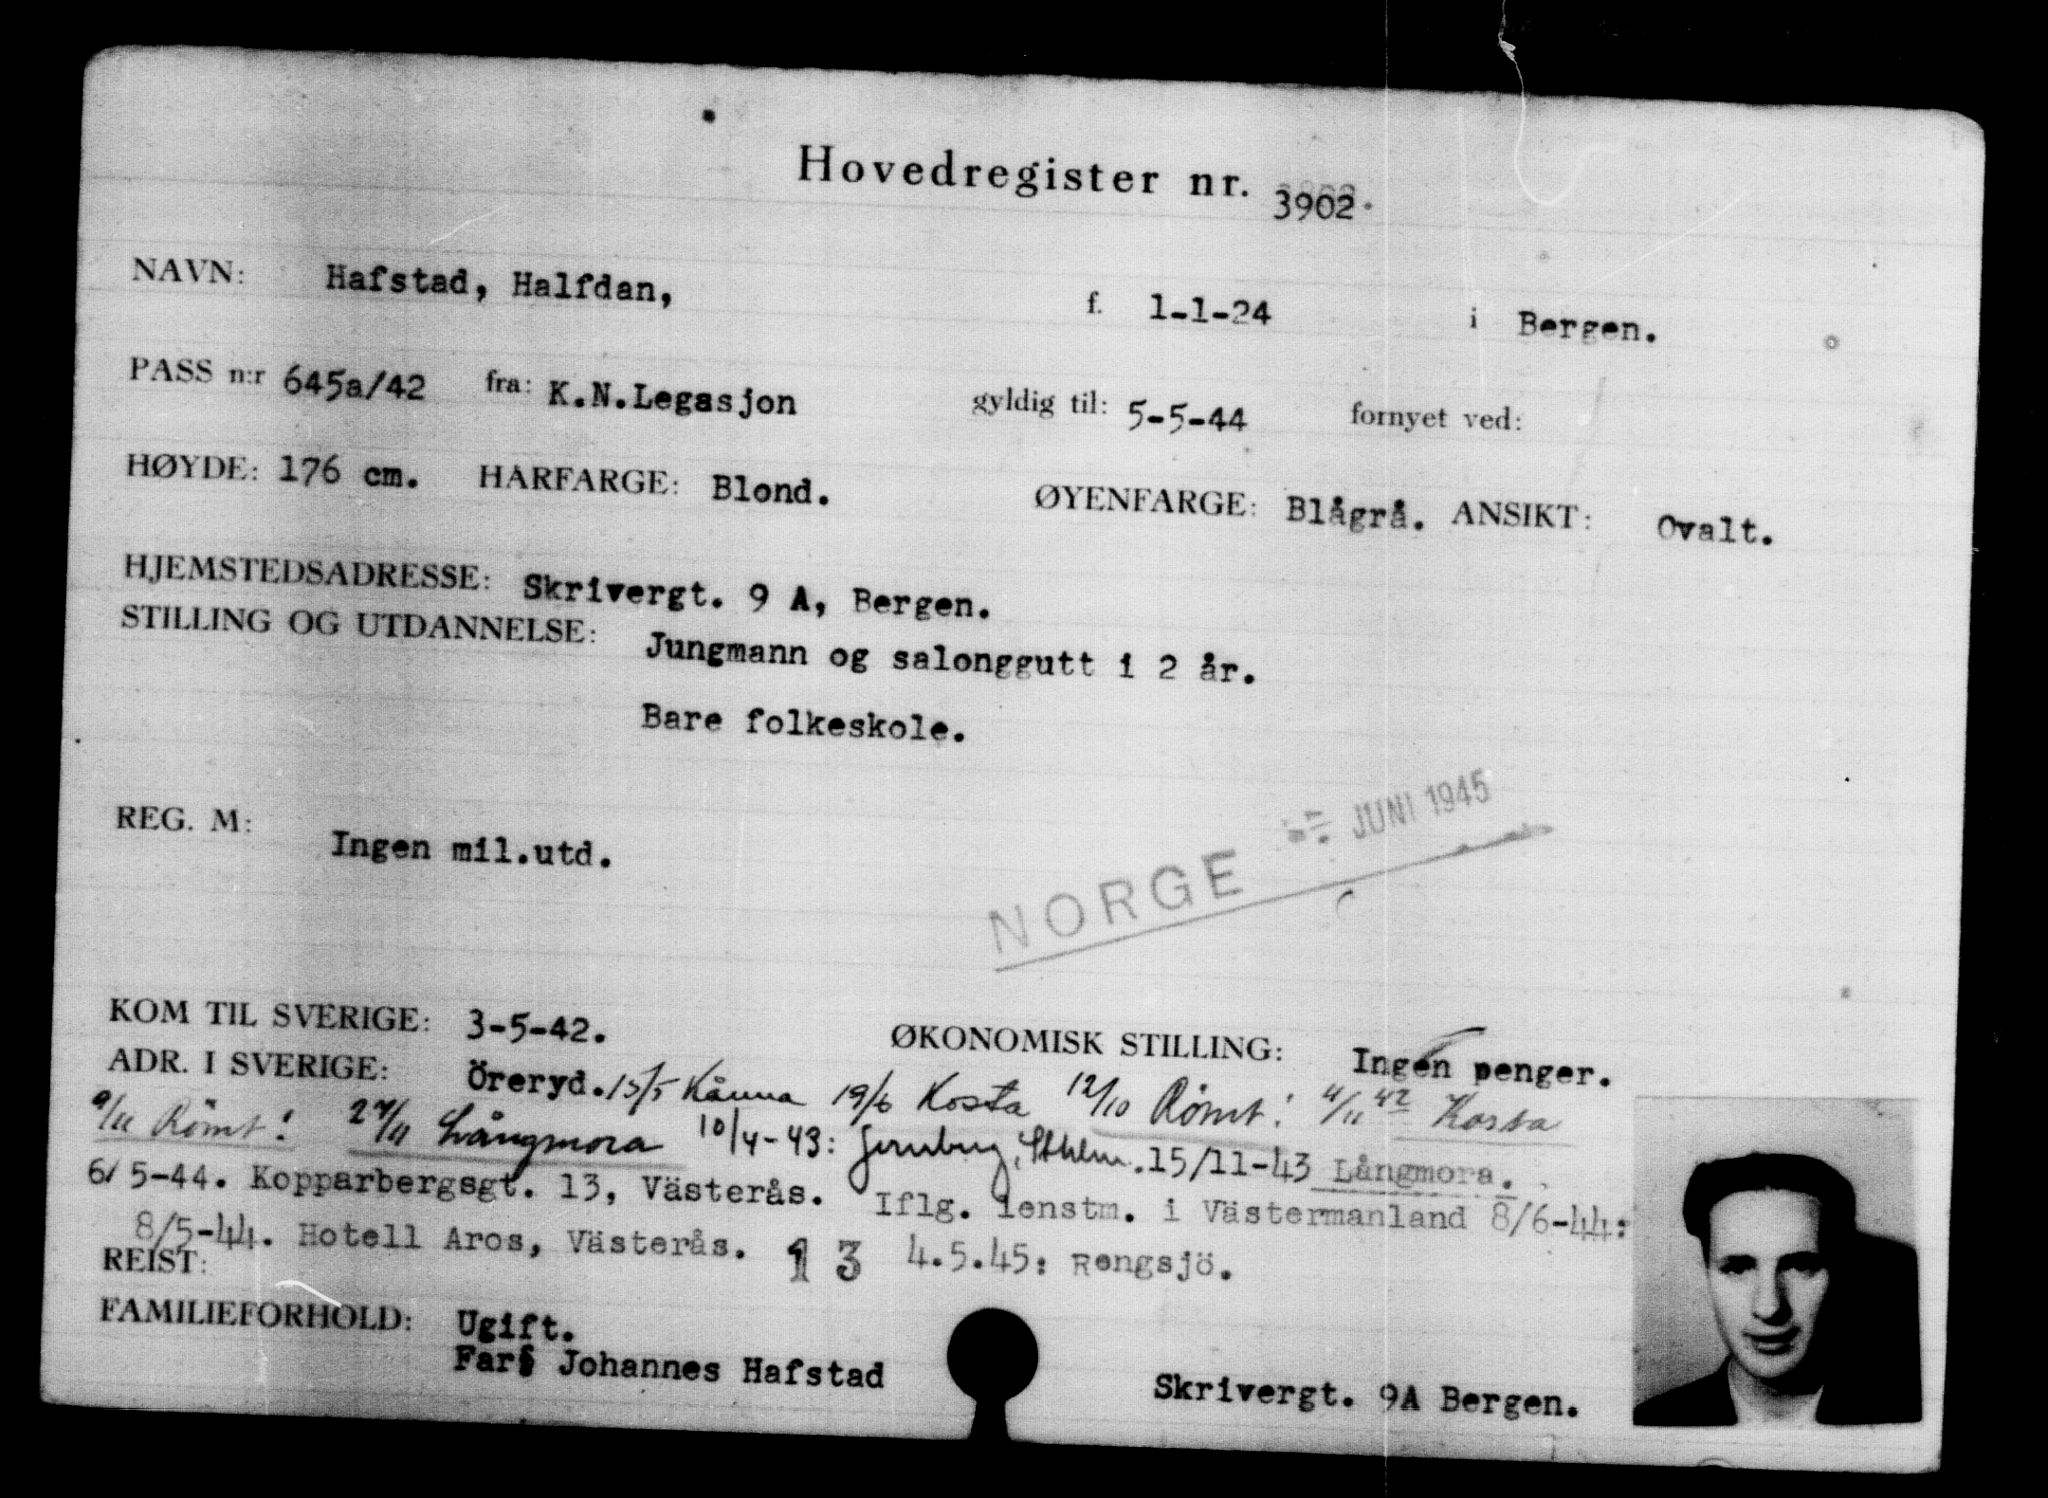 Hovedregister nr. 3902.
NAVN: Hafstad, Halfdan, f. 1-1-24 i Bergen.
PASS n:r 645a/42 fra: K.N.Legasjon gyldig til: 5-5-44 fornyet ved:
HØYDE: 176 cm. HARFARGE: Blond. ØYENFARGE: Blågrå. ANSIKT: Ovalt.
HJEMSTEDSADRESSE: Skrivergt. 9 A, Bergen.
STILLING OG UTDANNELSE: Jungmann og salonggutt i 2 år.
Bare folkeskole.
JUNI 1945
REG. M: Ingen mil.utd.
NORGE
KOM TIL SVERIGE: 3-5-42. ØKONOMISK STILLING: Ingen penger.
ADR. I SVERIGE: Öreryd. 15/5 Kånna 19/6 Kosta 12/10 Rømt! 4/11 42 Kosta
9/11 Rømt! 27/11 Långmora 10/4-43: Jernbug, Sthlm. 15/11-43 Långmora.
6/5-44. Kopparbergsgt. 13, Västerås. Iflg. lenstm. i Västermanland 8/6-44:
8/5-44. Hotell Aros, Västerås. 13 4.5.45: Rengsjö.
REIST:
FAMILIEFORHOLD: Ugift.
Far: Johannes Hafstad Skrivergt. 9A Bergen.